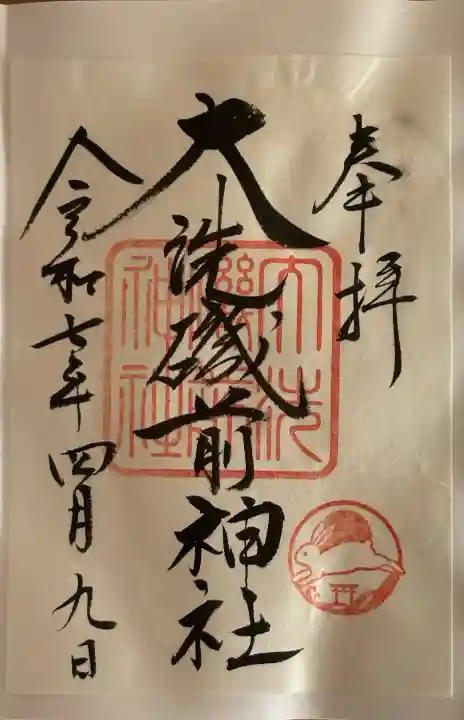 奉拝
大洗磯前神社
大洗
磯前
神社
令和七年四月九日